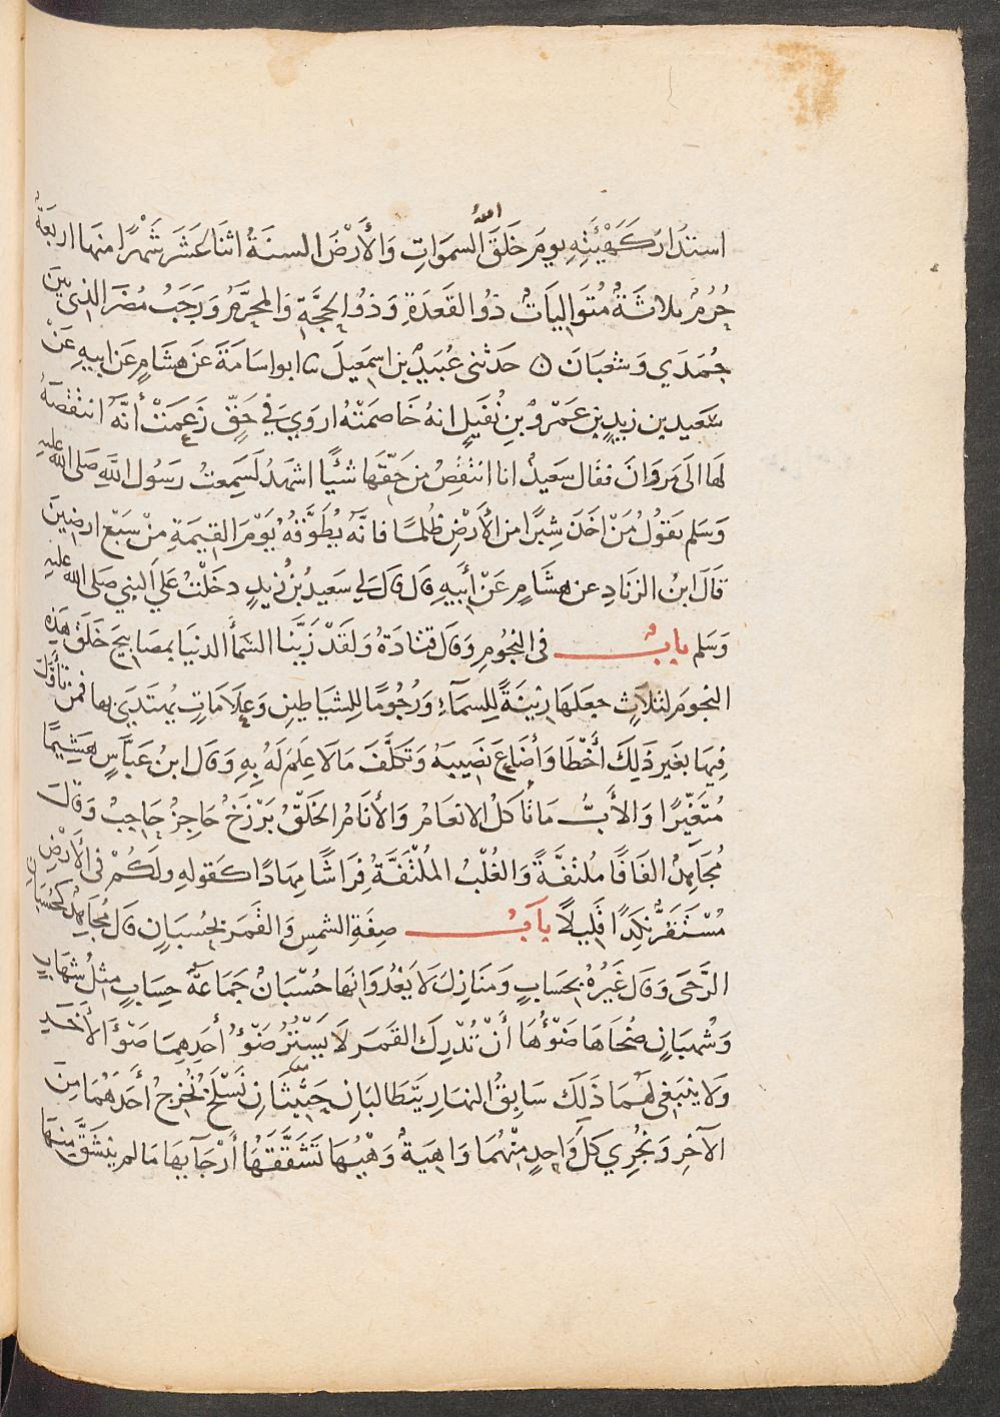 استدار كَهَيْئَتِهِ يومَ خَلَقَ الله السموَاتِ وَالأَرْضَ السنَةُ اثنَا عَشَرَ شَهْرًا منهَا اربَعَةٌ
حُرُمٌ ثلاثَةٌ مُتَوَالِيَاتٌ ذُو القَعَدَةِ وَذُو الحجَّةِ وَالمحَرَّمُ وَرَجَبُ مُضَرَ الذِى بَيْنَ
جُمَدَي وَشعبَانَ ۞ حَدثنى عُبَيدُ بن اسمَعِيلَ نا ابو اسَامَةَ عَن هشَامٍ عَن ابيهِ عَنْ
سَعِيد بن زيدِ بن عَمْرِو بْنِ نُفَيلٍ انهُ خَاصَمَتْهُ اروَي في حَقٍّ زَعمَتْ أنَّهُ انتقصَهُ
لهَا الَى مَروَانَ فقَال سَعيدٌ انا انتقِصُ من حَقّهَا شيًْا اشهَدُ لَسَمِعتُ رَسُول اللَّهِ صَلى الله عليه
وَسَلم يَقوُلُ مَنْ اخَذَ شِبرًا من الأَرْضِ ظُلمًا فانَّهُ يُطَوَّقهُ يَوْمَ القيمَةِ مِنْ سَبْع ارضِينَ
قَالَ ابنُ الزنَادِ عن هشَامٍ عَنْ أَبيهِ قال قال لي سَعيدُ بْنُ زيدٍ دخَلْتُ عَلَي النبي صَلى الله عليه
وَسَلم بابٌ فى النجُومِ وَقَال قتَادَةُ وَلقَدْ زَيَّنا السَّمأَ الدنيَا بمصَابيحَ خَلَقَ هَذِهِ
النجومَ لثلَاثٍ جعَلهَا زينَةً للِسمَآءِ وَرُجُومًا للِشيَاطينِ وَعلَامَاتٍ يُهتَدَي بها فمن تَأَوَّلَ
فِيهَا بغَير ذَلِكَ أَخْطَا وَأضَاعَ نصَيبَهُ وَتكلَّفَ مَا لَا عِلمَ لَهُ بِهِ وَقَال ابنُ عَبَّاسٍ هَشِيمًا
مُتغَيِّرًا وَالأَبُّ مَا تأكل الانعَامُ وَالأنَامُ الخَلْقُ بَرْزَخٌ حَاجِزٌ حَاجِبٌ وَقَالَ
مُجَاهِدٌ الفَافًا مُلتَفَّةً وَالغُلْبُ المُلْتَفَّةُ فِرَاشًا مِهَادًا كَقولهِ ولَكُمْ فِى الأَرْضِ
مُسْتَقَرٌّ نَكِدًا قَليلًا بَابٌ صِفَةِ الشمسِ وَالقَمَر بحُسبَانٍ قَال مُجَاهِدٌ كَحُسْبَانِ
الرَّحَى وَقال غَيرُهُ بحسَابٍ وَمَنَازِلَ لَا يَعْدُوَانِهَا حُسْبَانٌ جَمَاعَةُ حِسَابٍ مِثلُ شِهَابٍ
وَشُهبَانٍ ضُحَاهَا ضَوْؤُهَا أَنْ تُدْرِكَ القَمَر لَا يَسْتُرُ ضَوْءُ أَحَدِهِمَا ضَوْءَ الأَخَرِ
وَلَا ينبَغِى لَهُمَا ذَلكَ سَابقُ النهَار يَتطَالبَانِ حَثِيثَانِ نَسْلَخُ نُخرجُ أَحَدَهُمَا مِنَ
الآخِرِ وَنُجْرِي كل وَاحِدٍ مِنْهُمَا وَاهِيَةٌ وَهْيُهَا تَشَقُّقهَا أَرْجَآيِهَا مَا لم ينشَقَّ مِنهَا